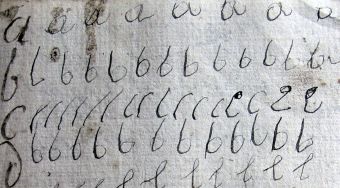 a a a a a a a a a
b b b b b b b b b b b b
c c c c c c c c c c c c c
b b b b b b b b b b b